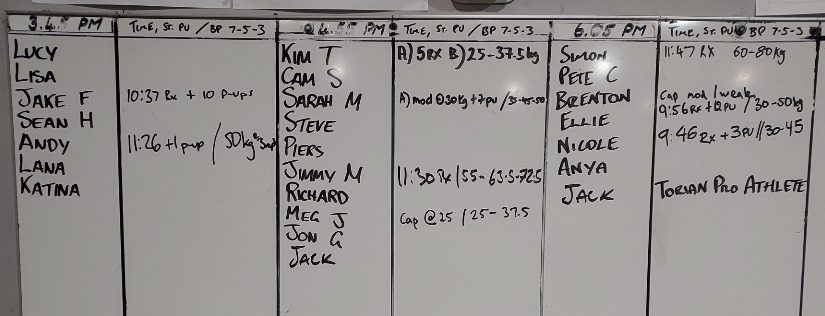 3.45 PM
TIME, ST. PU / BP 7-5-3
LUCY
LISA
JAKE F 10:37 Rx + 10 P-ups
SEAN H
ANDY 11:26 +1 pup / 50kg
LANA
KATINA
4.55 PM
TIME, ST. PU / BP 7-5-3
KIM T A) 5 RX B) 25-37.5kg
CAM S
SARAH M A) mod @30kg +7 PU / 35-45-50
STEVE
PIERS
JIMMY M 11:30 Rx / 55-63.5-72.5
RICHARD
MEG J Cap @ 25 / 25-37.5
JON G
JACK
6.05 PM
TIME, ST. PU / BP 7-5-3
SIMON 11:47 RX 60-80kg
PETE C
BRENTON Cap mod / weak
9:56 Rx + 12 PU / 30-50kg
ELLIE
NICOLE 9:46 Rx + 3 PU // 30-45
ANYA
JACK TORIAN PRO ATHLETE